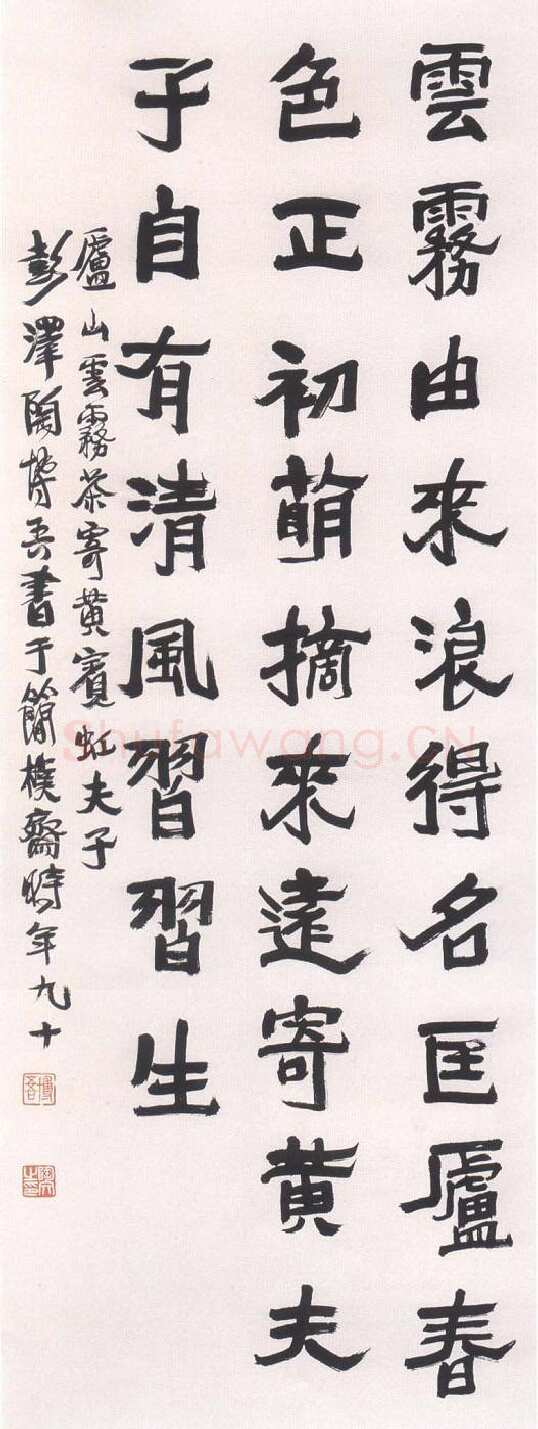 雲霧由來浪得名匡廬春
色正初萌摘來遠寄黄夫
子自有清風習習生
廬山雲霧茶寄黄賓虹夫子
彭澤陶博吾書于簡樸齋時年九十
Shufawang.CN